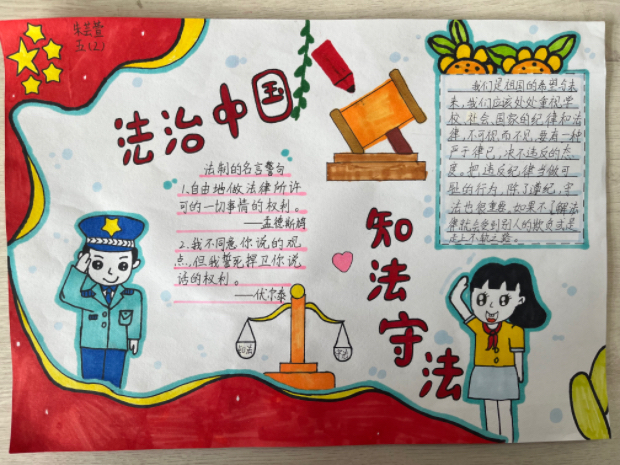 朱芸萱
五(2)
法治中国
法制的名言警句
1.自由地做法律所许
可的一切事情的权利。
——孟德斯鸠
2.我不同意你说的观
点,但我誓死捍卫你说
话的权利。
——伏尔泰
知法
守法
知法守法
我们是祖国的希望与未
来,我们应该处处重视学
校、社会、国家的纪律和法
律,不可视而不见,要有一种
严于律己,决不违反的态
度。把违反纪律当做可
耻的行为,除了遵纪,守
法也很重要。如果不了解法
律就会受到别人的欺负或是
走上不轨之路。